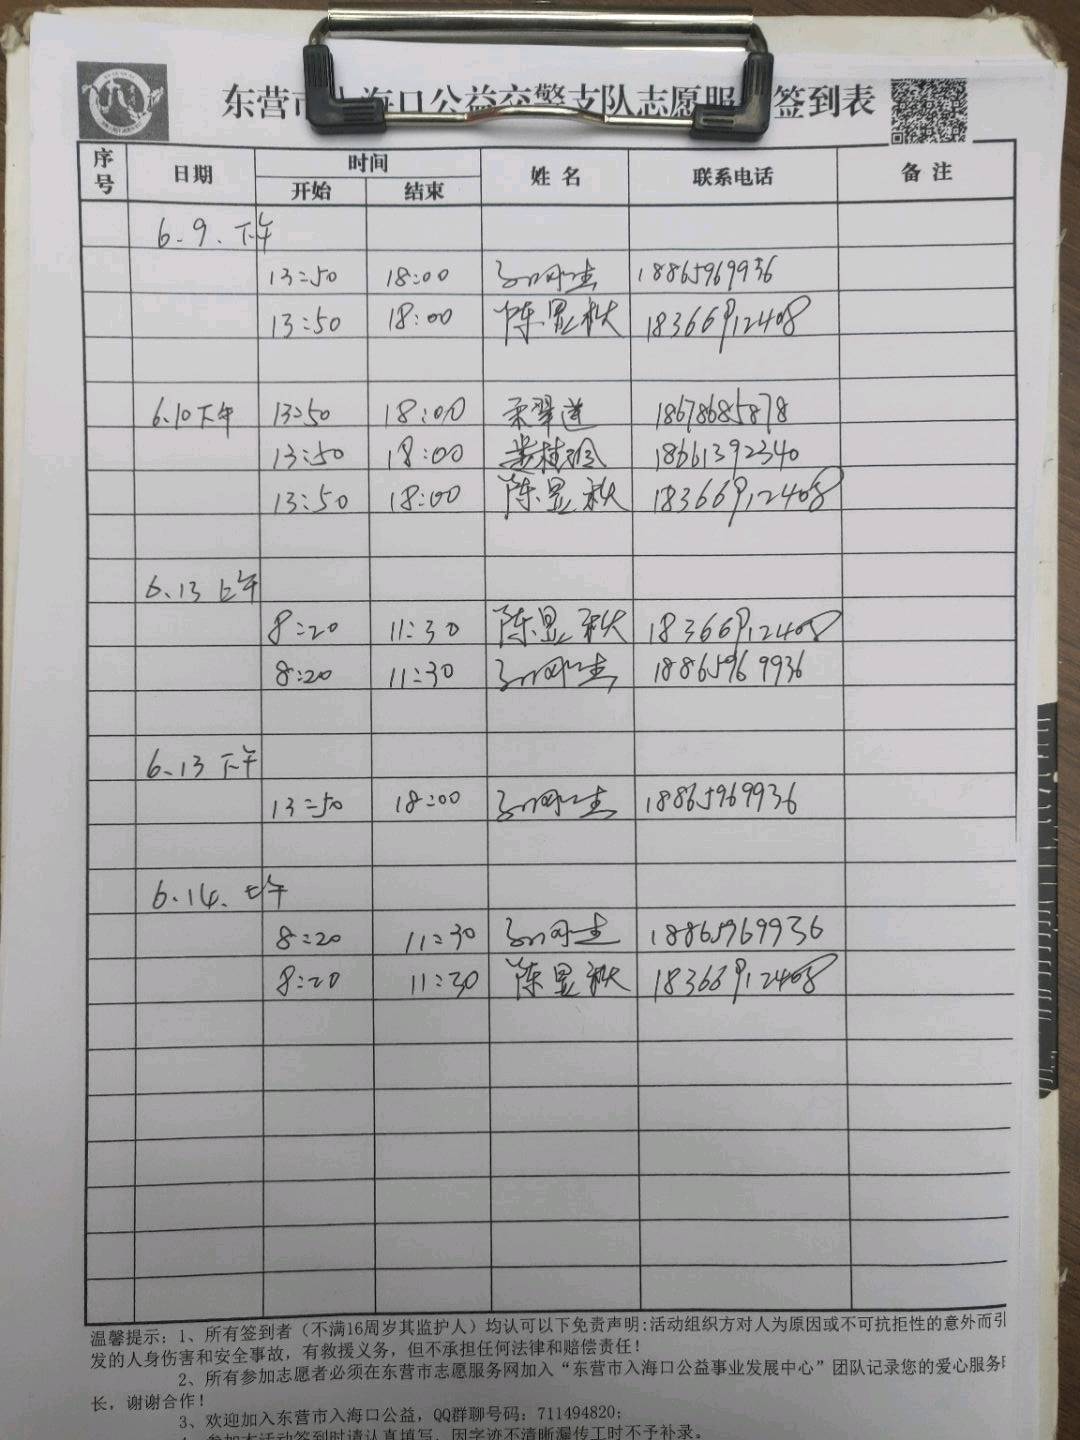 东营市入海口公益交警支队志愿服 签到表
序号 日期 时间 姓名 联系电话 备注
开始 结束
6.9.下午
13:50 18:00 18865969936
13:50 18:00 陈昱秋 18366912408
6.10下午 13:50 18:00 18678685878
13:50 18:00 18661392340
13:50 18:00 陈昱秋 18366912408
6.13上午
8:20 11:30 陈昱秋 18366912408
8:20 11:30 18865969936
6.13下午
13:50 18:00 18865969936
6.14.上午
8:20 11:30 18865969936
8:20 11:30 陈昱秋 18366912408
温馨提示：1、所有签到者（不满16周岁其监护人）均认可以下免责声明:活动组织方对人为原因或不可抗拒性的意外而引
发的人身伤害和安全事故，有救援义务，但不承担任何法律和赔偿责任！
2、所有参加志愿者必须在东营市志愿服务网加入“东营市入海口公益事业发展中心”团队记录您的爱心服务时
长，谢谢合作！
3、欢迎加入东营市入海口公益，QQ群聊号码：711494820；
4、参加本活动签到时请认真填写，因字迹不清晰漏传工时不予补录。